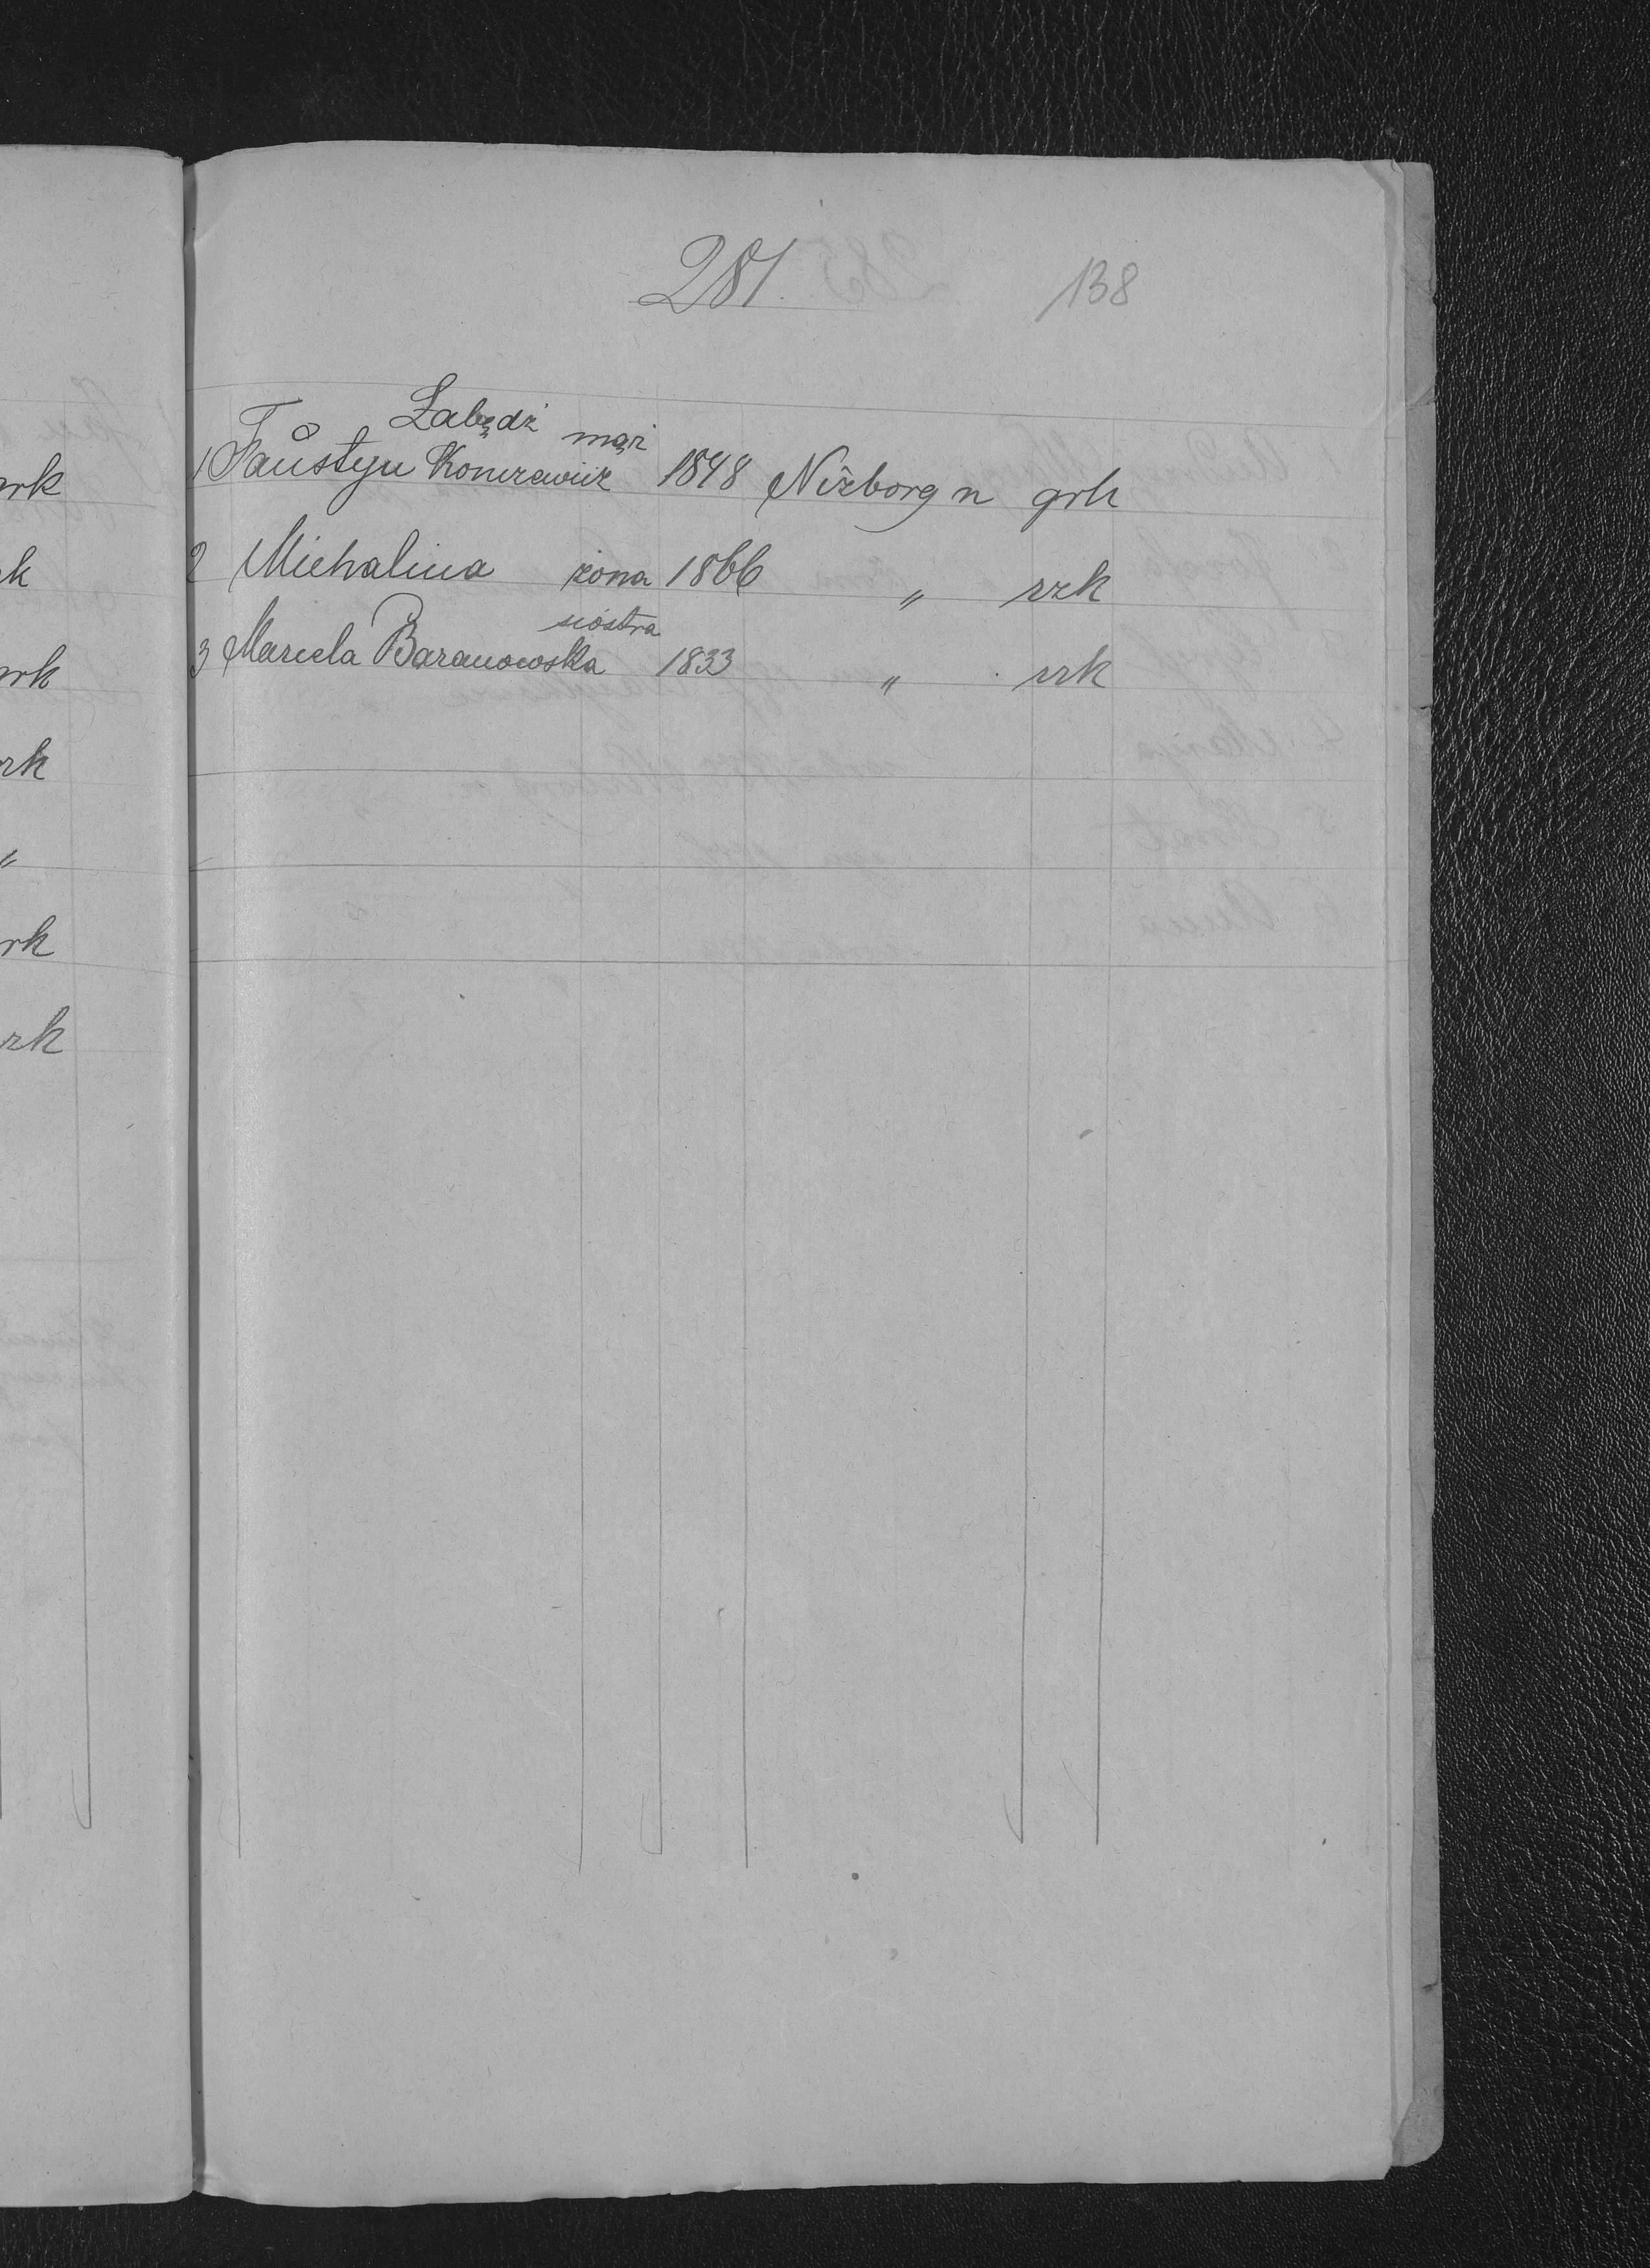 281.
138
Łabędź mąż
1 Faustyn Komzewicz 1848 Niżborg n grk
2 Michalina żona 1866 " rzk
siostra
3 Marcela Baranowska 1833 " rzk
rk
k
rk
rk
"
rk
rk